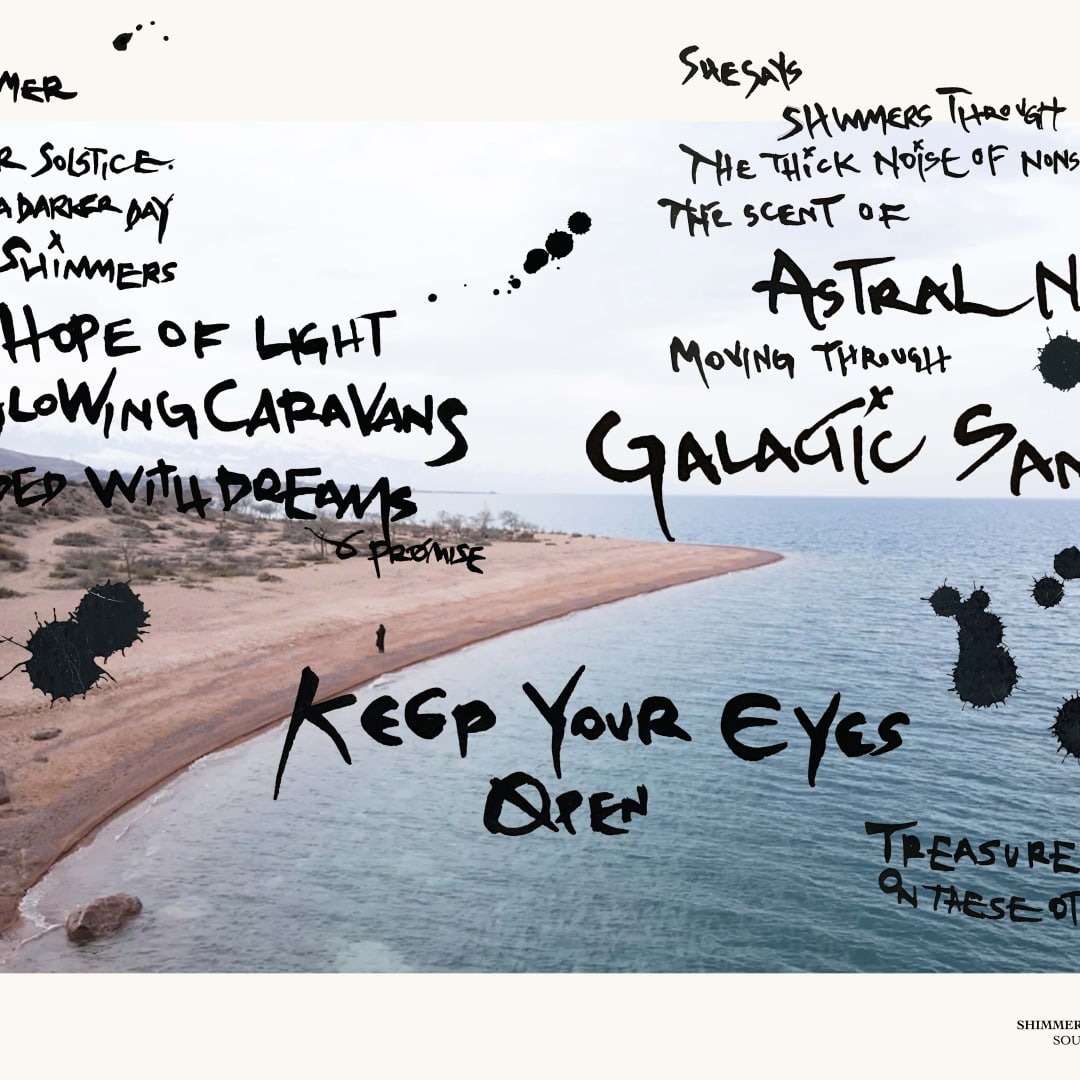 MER
R SOLSTICE.
A DARKER DAY
SHIMMERS
HOPE OF LIGHT
LOWING CARAVANS
DED WITH DREAMS
& PROMISE
SHE SAYS
SHIMMERS THROUGH
THE THICK NOISE OF NONS
THE SCENT OF
ASTRAL N
MOVING THROUGH
GALACTIC SAN
KEEP YOUR EYES
OPEN
TREASURE
ON THESE OT
SHIMMER
SOU